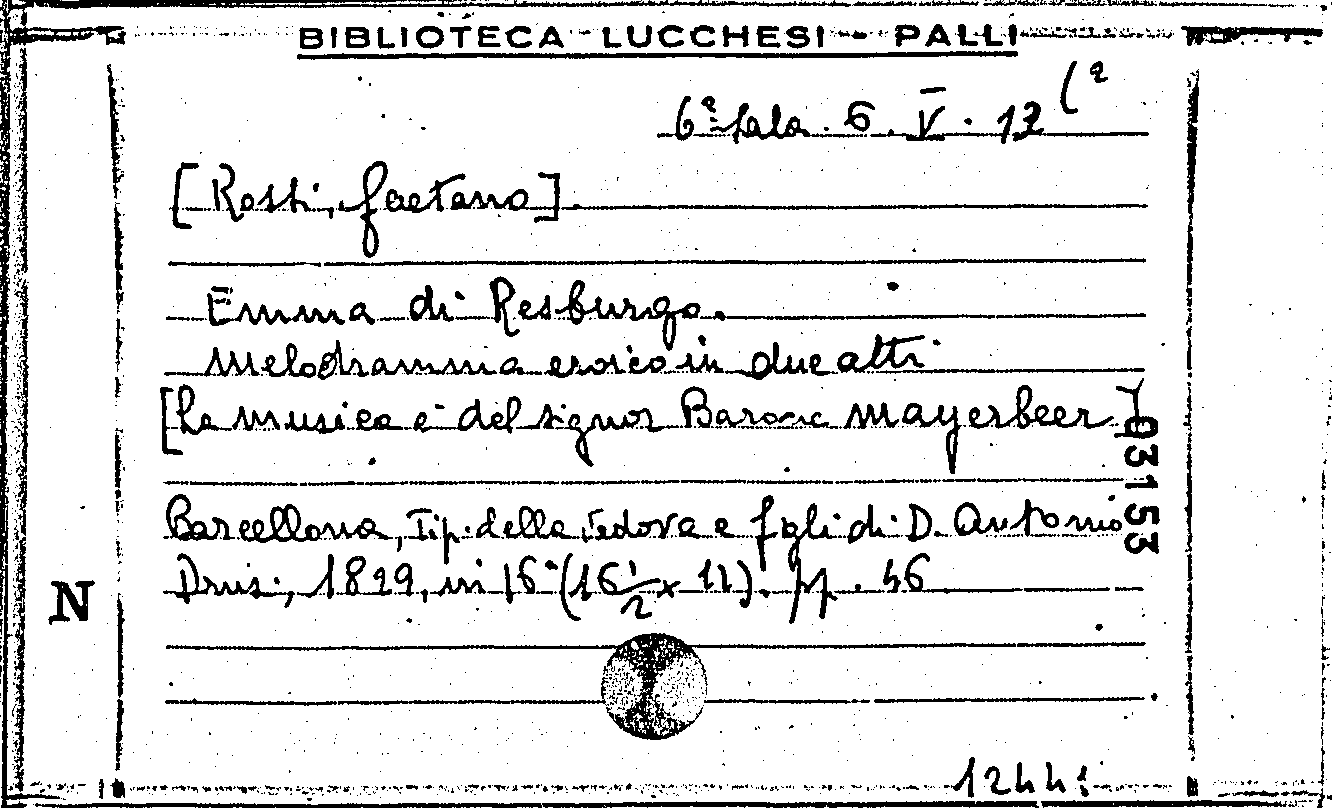 BIBLIOTECA LUCCHESI - PALLI
6ª Sala. 6. V. 12 (2
[Rossi, Gaetano].
Emma di Resburgo.
Melodramma eroico in due atti
[La musica è del signor Barone Mayerbeer]
03153
Barcellona, Tip. della Vedova e figli di D. Antonio
1829, in 16° (16 1/2 x 11). pp. 46
N